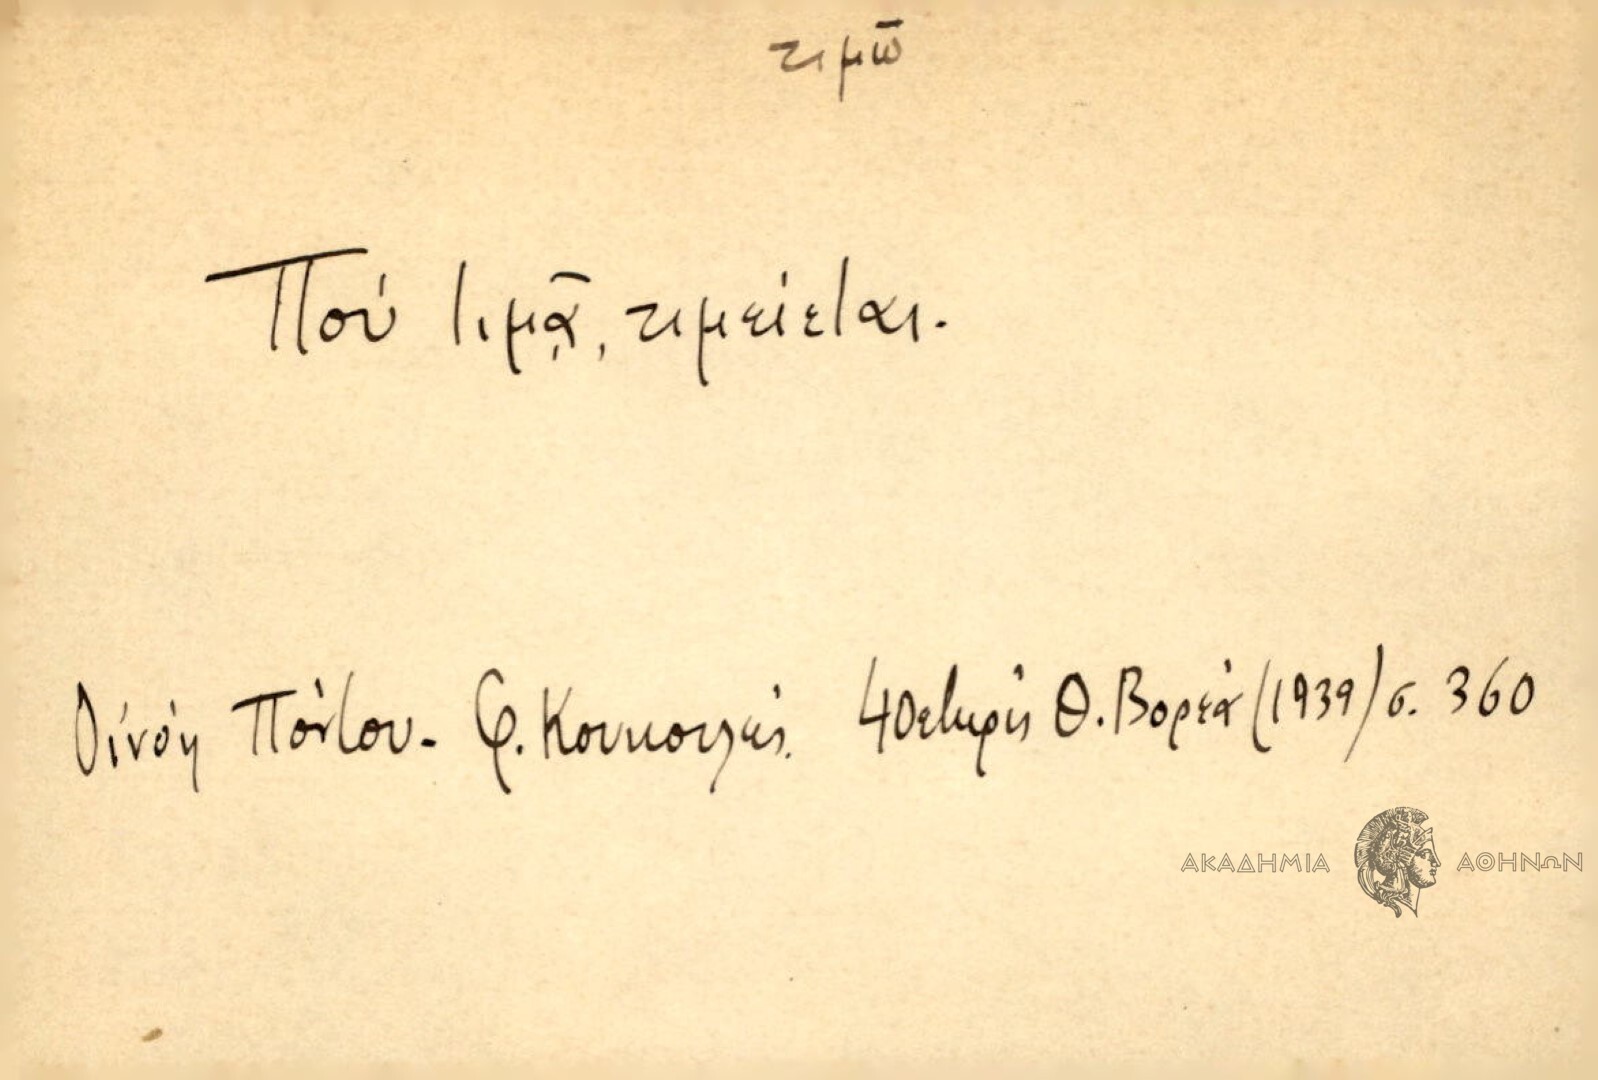 τιμῶ
Πού τιμᾷ, τιμείεται.
Οἰνόη Πόντου - Φ. Κουκουλές. 40ετηρίς Θ. Βορέα (1939) σ. 360
ΑΚΑΔΗΜΙΑ ΑΘΗΝΩΝ